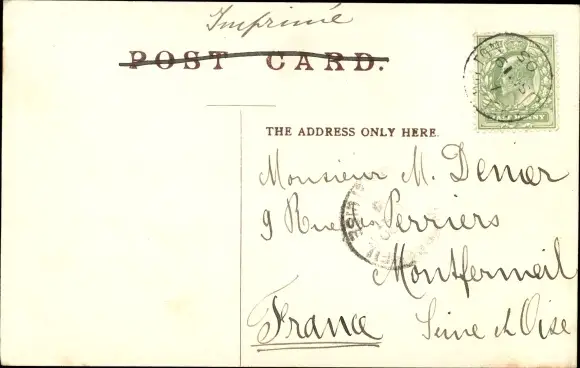 Imprimé
POST CARD.
HALF PENNY
THE ADDRESS ONLY HERE.
Monsieur M. Denier
9 Rue des Perriers
Montfermeil
France Seine et Oise